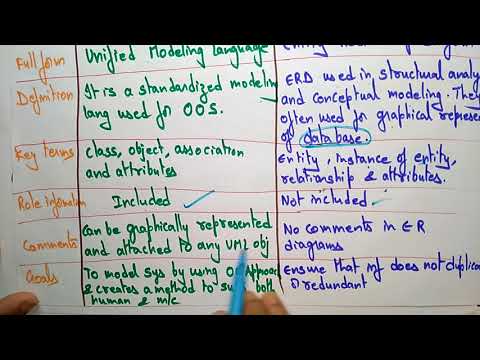 Full form
Unified Modeling Language
Definition
It is a standardized modeling
lang used for OOS.
ERD used in, structural analy
and conceptual modeling. They
often used for graphical represe
of database.
Key terms
class, object, association
and attributes
Entity, instance of entity,
relationship & attributes.
Role information
Included ✓
Not included ✓
Comments
Can be graphically represented
and attached to any UML obj
No comments in ER
diagrams
Goals
To model sys by using OO Approac
& creates a method to both
human & m/c
Ensure that inf does not duplica
redundant